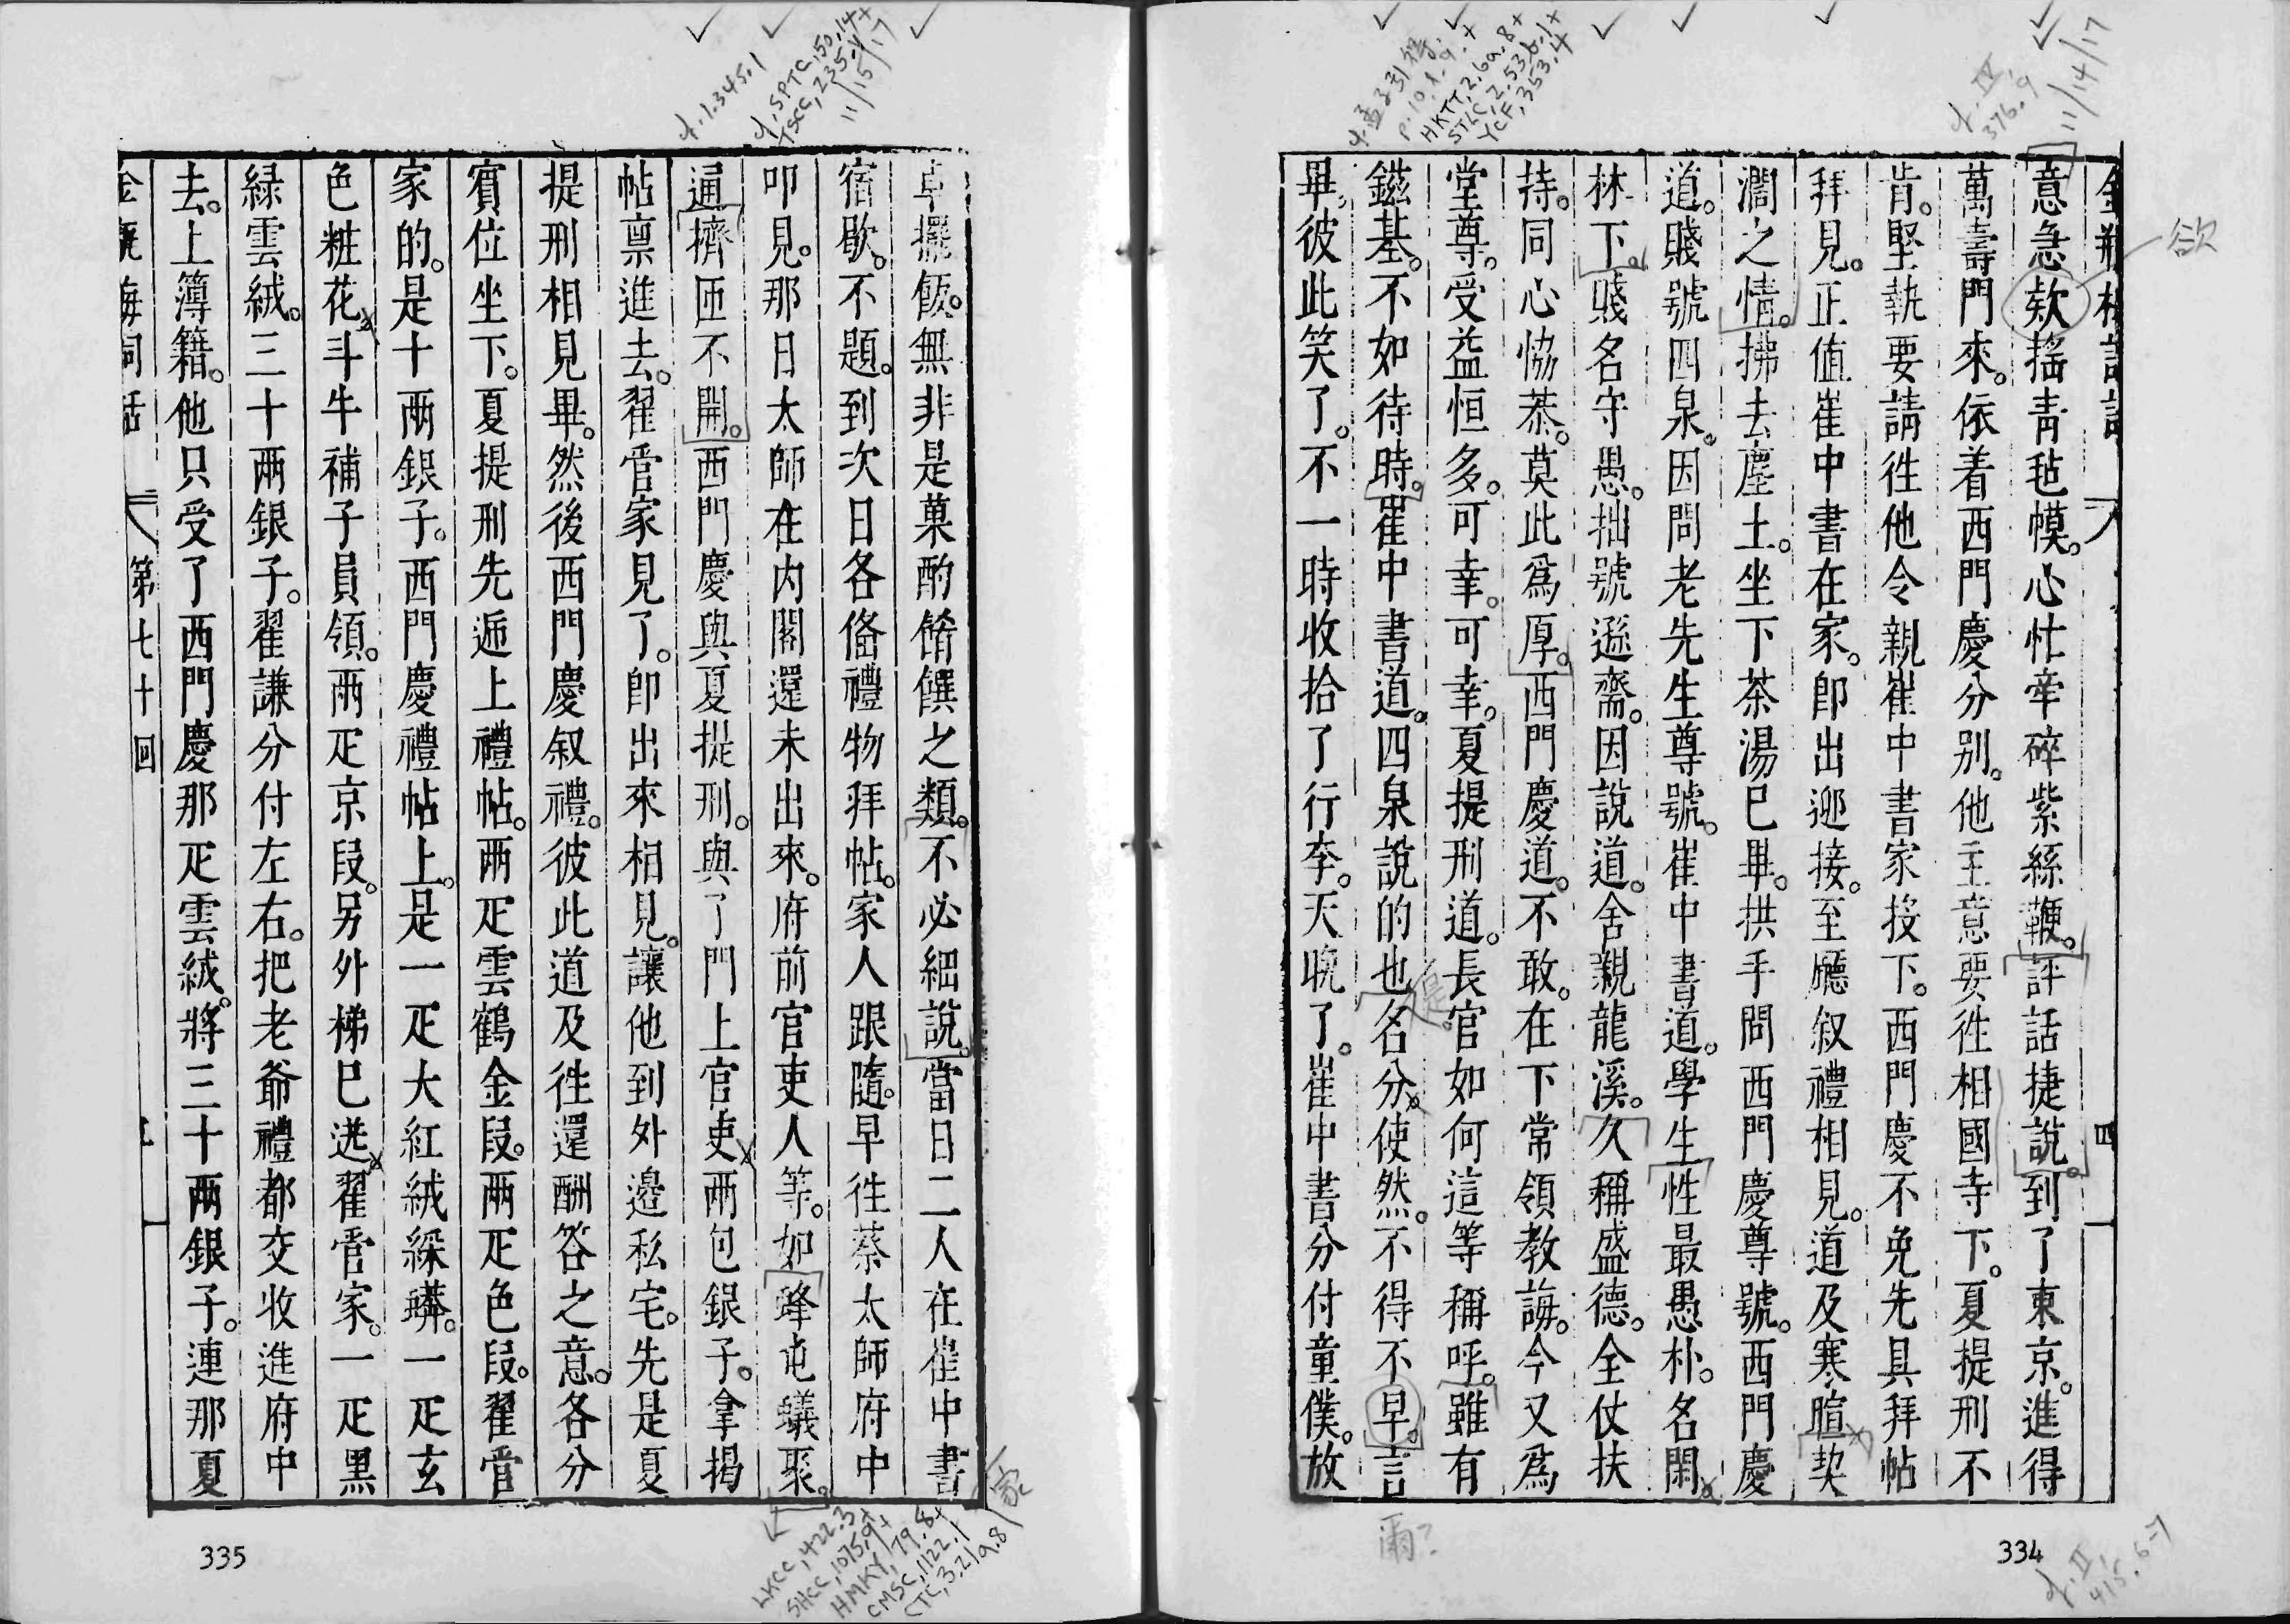 金瓶梅詞話 八 四
意急欸搖青毡幙。心忙牽碎紫絲鞭。評話捷說。到了東京。進得
萬壽門來。依着西門慶分別。他主意要徃相國寺下。夏提刑不
肯。堅執要請徃他令親崔中書家投下。西門慶不免先具拜帖
拜見。正值崔中書在家。卽出迎接。至廳叙禮相見。道及寒暄契
濶之情。拂去塵土。坐下茶湯已畢。拱手問西門慶尊號。西門慶
道。賤號四泉。因問老先生尊號。崔中書道。學生性最愚朴。名閑
林下。賤名守愚。拙號遜齋。因說道。舍親龍溪。久稱盛德。全仗扶
持。同心協恭。莫此爲厚。西門慶道。不敢。在下常領教誨。今又爲
堂尊。受益恒多。可幸。可幸。夏提刑道。長官如何這等稱呼。雖有
鎡基。不如待時。崔中書道。四泉說的也名分使然。不得不早。言
畢彼此笑了。不一時收拾了行李。天晚了。崔中書分付童僕。放
卓擺飯。無非是菓酌餚饌之類。不必細說。當日二人在崔中書
宿歇。不題。到次日各俻禮物拜帖。家人跟隨。早徃蔡太師府中
叩見。那日太師在内閣還未出來。府前官吏人等。如蜂屯蟻聚。
通擠匝不開。西門慶與夏提刑。與了門上官吏兩包銀子。拿揭
帖禀進去。翟管家見了。卽出來相見。讓他到外邊私宅。先是夏
提刑相見畢。然後西門慶叙禮。彼此道及徃還酬答之意。各分
賓位坐下。夏提刑先逓上禮帖。兩疋雲鶴金段。兩疋色段。翟管
家的。是十兩銀子。西門慶禮帖上。是一疋大紅絨綵蟒。一疋玄
色粧花斗牛補子員領。兩疋京段。另外梯已送翟管家。一疋黑
綠雲絨。三十兩銀子。翟謙分付左右。把老爺禮都交收進府中
去。上簿籍。他只受了西門慶那疋雲絨。將三十兩銀子。連那夏
金瓶梅詞話 八 第七十回 五
334
335
欲
11/14/17
11/15/17
是
家
爾?
cf. IV, 376.9
cf. II, 415.6-7
cf. 1.345.1
cf. SPTC, 150.14+
TSCC, 235.4
HKTT, 2.6a.8+
STLC, 2.53b.1+
YCF, 353.4
LKCC, 422.3+
SHCC, 1075.9+
HMKY, 79.8+
CMSC, 1122.1
CTC, 3.219.8